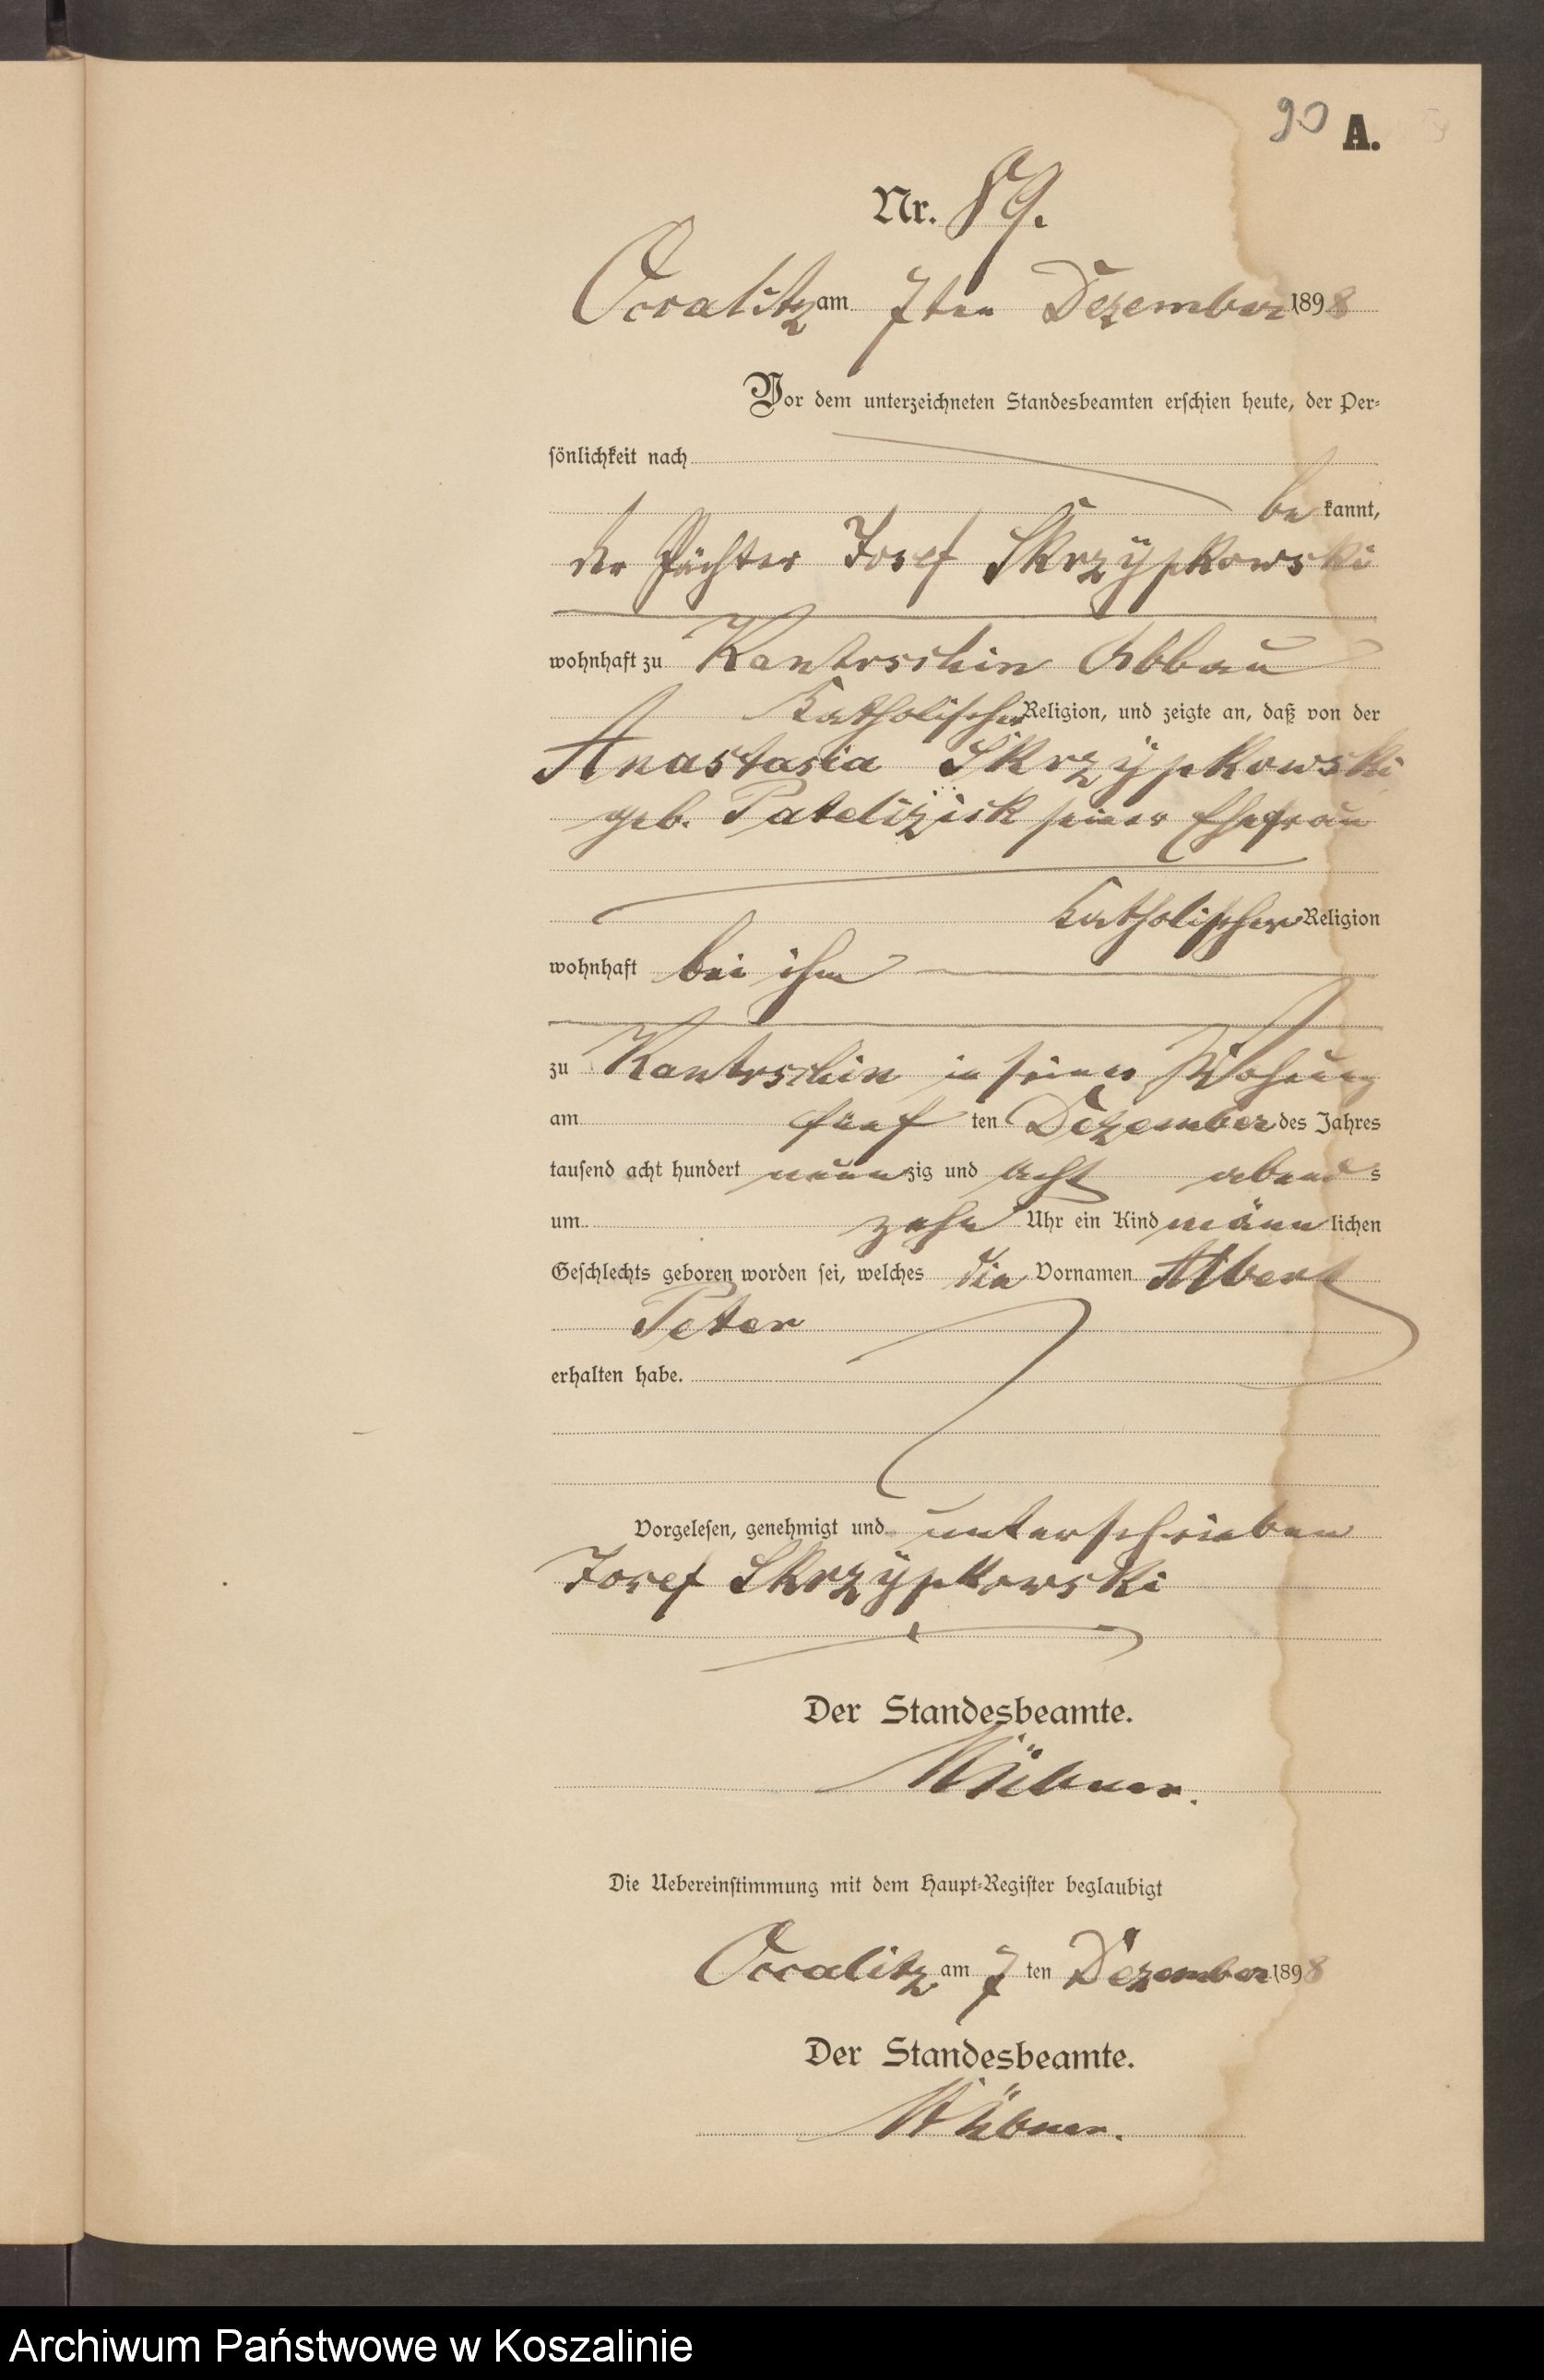 90 A.
Nr. 89.
Occalitz am 7ten Dezember 1898
Vor dem unterzeichneten Standesbeamten erschien heute, der Per-
sönlichkeit nach
be kannt,
der Pächter Josef Skrzÿpkowski
wohnhaft zu Kantrschin Abbau
katholischer Religion, und zeigte an, daß von der
Anastasia Skrzÿpkowski
geb. seiner Ehefrau
katholischer Religion
wohnhaft bei ihm
zu Kantrschin in seiner Wohung
am fünf ten Dezember des Jahres
tausend acht hundert neun zig und acht abend s
um zehn Uhr ein Kind männ lichen
Geschlechts geboren worden sei, welches die Vornamen Albert
Peter
erhalten habe.
Vorgelesen, genehmigt und unterschrieben
Josef Skrzÿpkowski
Der Standesbeamte.
Hübner.
Die Uebereinstimmung mit dem Haupt-Register beglaubigt
Occalitz am 7 ten Dezember 1898
Der Standesbeamte.
Hübner.
Archiwum Państwowe w Koszalinie